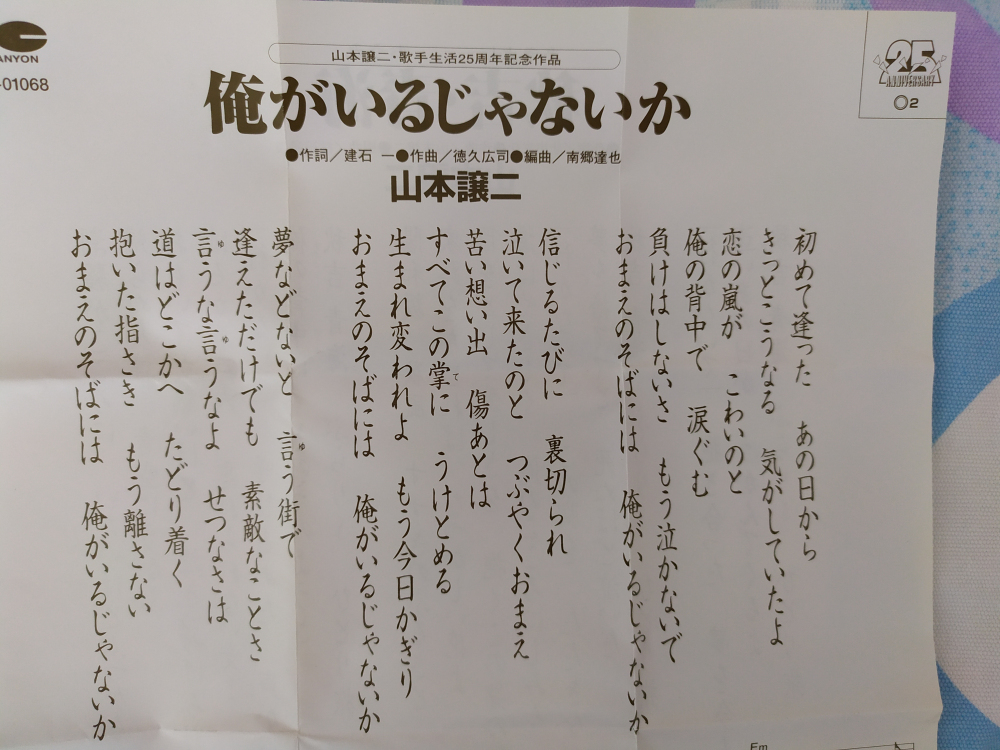 ANYON
-01068
山本譲二・歌手生活25周年記念作品
25
ANNIVERSARY
◎2
俺がいるじゃないか
●作詞／建石 一●作曲／徳久広司●編曲／南郷達也
山本譲二
初めて逢った　あの日から
きっとこうなる　気がしていたよ
恋の嵐が　こわいのと
俺の背中で　涙ぐむ
負けはしないさ　もう泣かないで
おまえのそばには　俺がいるじゃないか
信じるたびに　裏切られ
泣いて来たのと　つぶやくおまえ
苦い想い出　傷あとは
すべてこの掌(て)に　うけとめる
生まれ変われよ　もう今日かぎり
おまえのそばには　俺がいるじゃないか
夢などないと　言(ゆ)う街で
逢えただけでも　素敵なことさ
言(ゆ)うな言(ゆ)うなよ　せつなさは
道はどこかへ　たどり着く
抱いた指さき　もう離さない
おまえのそばには　俺がいるじゃないか
Em